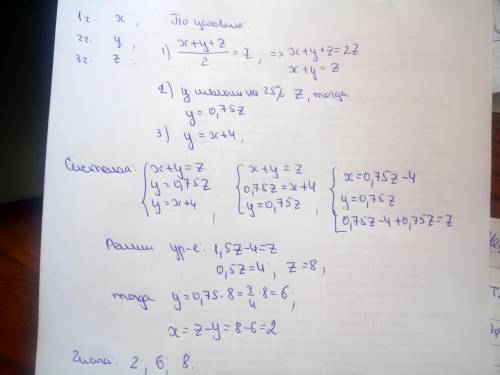 1ч. x, По условию:
2ч. y,
3ч. z. 1) (x+y+z)/2 = z, => x+y+z=2z
x+y=z
2) y меньше на 25% z, тогда
y=0,75z
3) y=x+4,
Система: { x+y=z { x+y=z { x=0,75z-4
y=0,75z 0,75z=x+4 y=0,75z
y=x+4, y=0,75z, 0,75z-4+0,75z=z
Решим ур-е: 1,5z-4=z
0,5z=4; z=8,
тогда y=0,75·8=3/4·8=6;
x=z-y=8-6=2
Числа: 2; 6; 8.